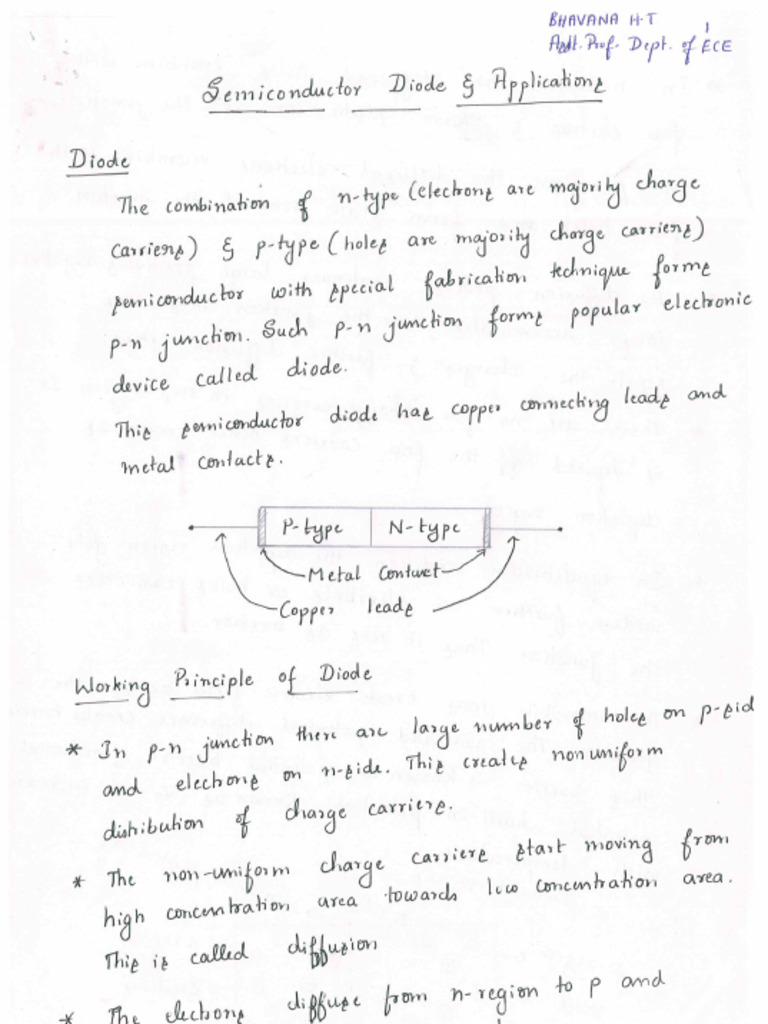 BHAVANA H.T
Asst. Prof. Dept. of ECE
Semiconductor Diode & Applications
Diode
The combination of n-type (electrons are majority charge
carriers) & p-type (holes are majority charge carriers)
semiconductor with special fabrication technique forms
p-n junction. Such p-n junction forms popular electronic
device called diode.
This semiconductor diode has copper connecting leads and
metal contacts.
P-type N-type
Metal Contact
Copper leads
Working Principle of Diode
* In p-n junction there are large number of holes on p-sid
and electrons on n-side. This creates nonuniform
distribution of charge carriers.
* The non-uniform charge carriers start moving from
high concentration area towards low concentration area.
This is called diffusion
* The electrons diffuse from n-region to p and